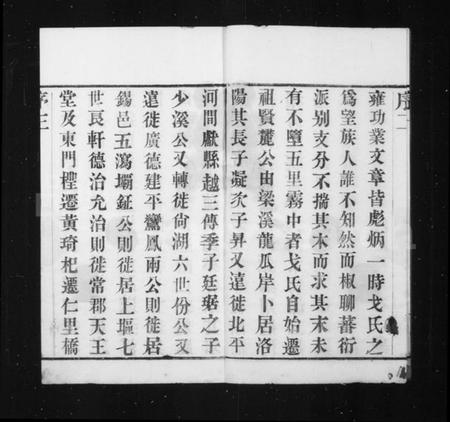 序二
雍功業文章皆彪炳一時戈氏之
爲望族人誰不知然而椒聊蕃衍
派別支分不揣其本而求其末未
有不墮五里霧中者戈氏自始遷
祖賢麓公由梁溪龍瓜岸卜居洛
陽其長子凝次子昇又遠徙北平
河間獻縣越三傳季子廷琚之子
少溪公又轉徙尙湖六世份公又
遠徙廣德建平鸞鳳雨公則徙居
錫邑五瀉壩鉦公則徙居上塸七
世良軒德治允治則徙常郡天王
堂及東門橙遷黃琦杞遷仁里橋
序三